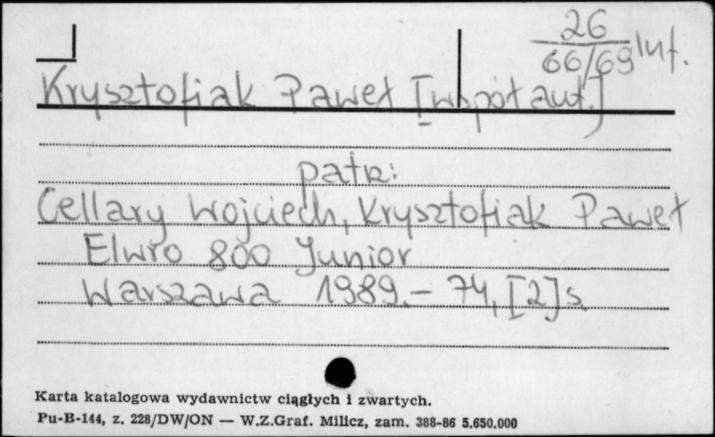 26
66/69 inf.
Krysztofiak Paweł [współaut.]
patrz:
Cellary Wojciech, Krysztofiak Paweł
Elwro 800 Junior
Warszawa 1989.- 74, [2] s.
Karta katalogowa wydawnictw ciągłych i zwartych.
Pu-B-144, z. 228/DW/ON — W.Z.Graf. Milicz, zam. 388-86 5.650.000